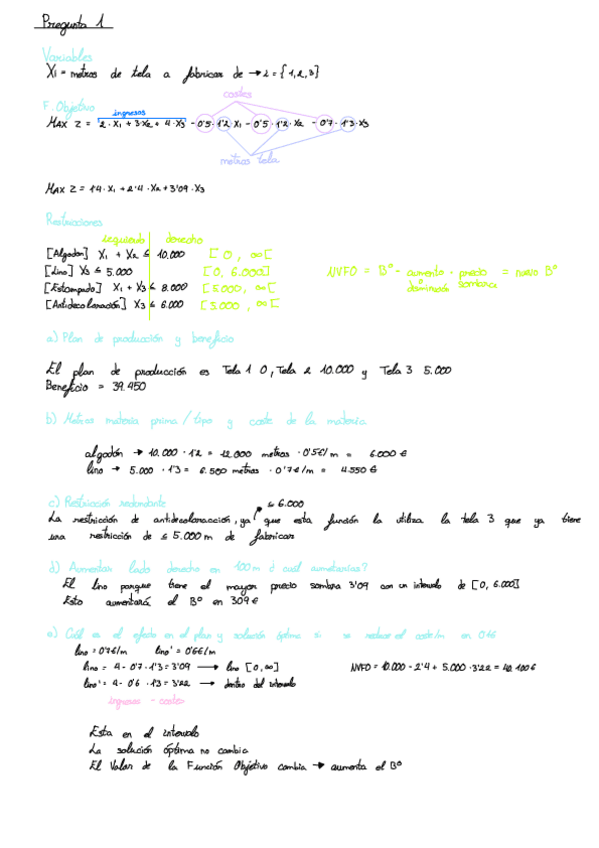 Pregunta 1
Variables
X₁ = metros de tela a fabricar de → i = {1,2,3}
costes
F. Objetivo
ingresos
MAX Z = 2·X₁ + 3·X₂ + 4·X₃ - 0'5·1'2 X₁ - 0'5·1'2·X₂ - 0'7·1'3·X₃
metros tela
MAX Z = 1'4·X₁ + 2'4·X₂ + 3'09·X₃
Restricciones
izquierdo derecho
[Algodón] X₁ + X₂ ≤ 10.000 [0, ∞[
[Lino] X₃ ≤ 5.000 [0, 6.000]
[Estampado] X₁ + X₃ ≤ 8.000 [5.000, ∞[
[Antidecoloración] X₃ ≤ 6.000 [5.000, ∞[
NVFO = Bº - aumento · precio = nuevo Bº
disminución sombra
a) Plan de producción y beneficio
El plan de producción es Tela 1 0, Tela 2 10.000 y Tela 3 5.000
Beneficio = 39.450
b) Metros materia prima / tipo y coste de la materia
algodón → 10.000 · 1'2 = 12.000 metros · 0'5€/m = 6.000 €
lino → 5.000 · 1'3 = 6.500 metros · 0'7€/m = 4.550 €
c) Restricción redundante
≤ 6.000
La restricción de antidecoloracción, ya que esta función la utiliza la tela 3 que ya tiene
una restricción de ≤ 5.000 m de fabricar
d) Aumentar lado derecho en 100m ¿cuál aumentarías?
El lino porque tiene el mayor precio sombra 3'09 con un intervalo de [0, 6.000]
Esto aumentará el Bº en 309€
e) Cuál es el efecto en el plan y solución óptima si se reduce el coste/m en 0'6
lino = 0'7€/m lino' = 0'6€/m
lino = 4 - 0'7·1'3 = 3'09 → lino [0, ∞]
lino' = 4 - 0'6·1'3 = 3'22 → dentro del intervalo
NVFO = 10.000 · 2'4 + 5.000 · 3'22 = 40.100€
ingresos - costes
Esta en el intervalo
La solución óptima no cambia
El Valor de la Función Objetivo cambia → aumenta el Bº